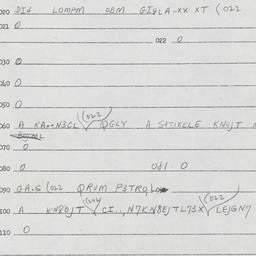 020 DIH LOMPM OBM GIHLA-XX XT (022
021 0
022 0
030 0
040 0
050 0
060 A KA--N3CL (022 QGLY A STIKELE KNOJT
070 0
080 0 081 0
090 GA.S (022 QRUM P3TRQ
100 A KN8OJT CI.., N7KN8EJTL73X (022 LEJGN7
110 0